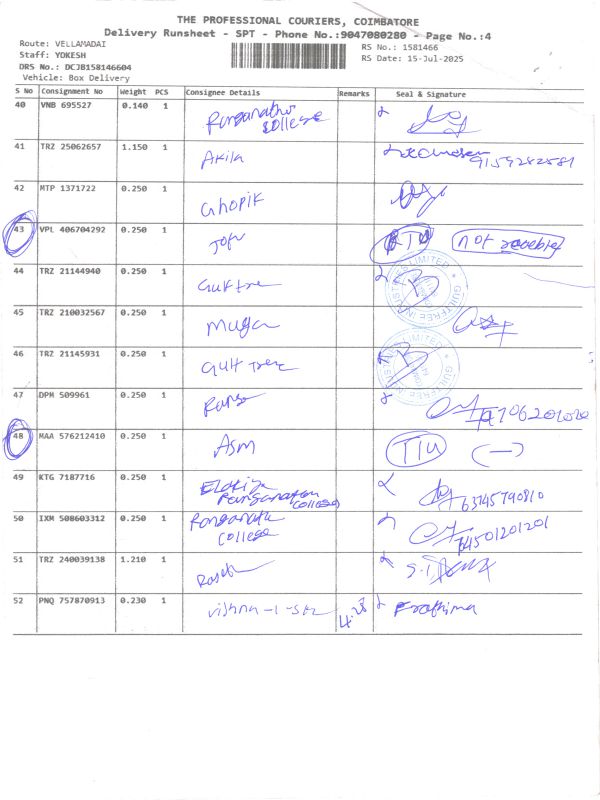 THE PROFESSIONAL COURIERS, COIMBATORE
Delivery Runsheet - SPT - Phone No.:9047080280 - Page No.:4
Route: VELLAMADAI RS No.: 1581466
Staff: YOKESH RS Date: 15-Jul-2025
DRS No.: DCJB158146604
Vehicle: Box Delivery
S No Consignment No Weight PCS Consignee Details Remarks Seal & Signature
40 VNB 695527 0.140 1 Ranganathar College
41 TRZ 25062657 1.150 1 Akila 9159282581
42 MTP 1371722 0.250 1 Ghopik
43 VPL 406704292 0.250 1 Jofu RTU not
44 TRZ 21144940 0.250 1
45 TRZ 210032567 0.250 1 Muga
GUILTFREE INDUSTRIES LIMITED
46 TRZ 21145931 0.250 1
GUILTFREE INDUSTRIES LIMITED
47 DPM 509961 0.250 1
48 MAA 576212410 0.250 1 Asm TIU (—)
49 KTG 7187716 0.250 1 Ranganathan College 63145790810
50 IXM 508603312 0.250 1 Ranganatha College
51 TRZ 240039138 1.210 1
52 PNQ 757870913 0.230 1 4.28